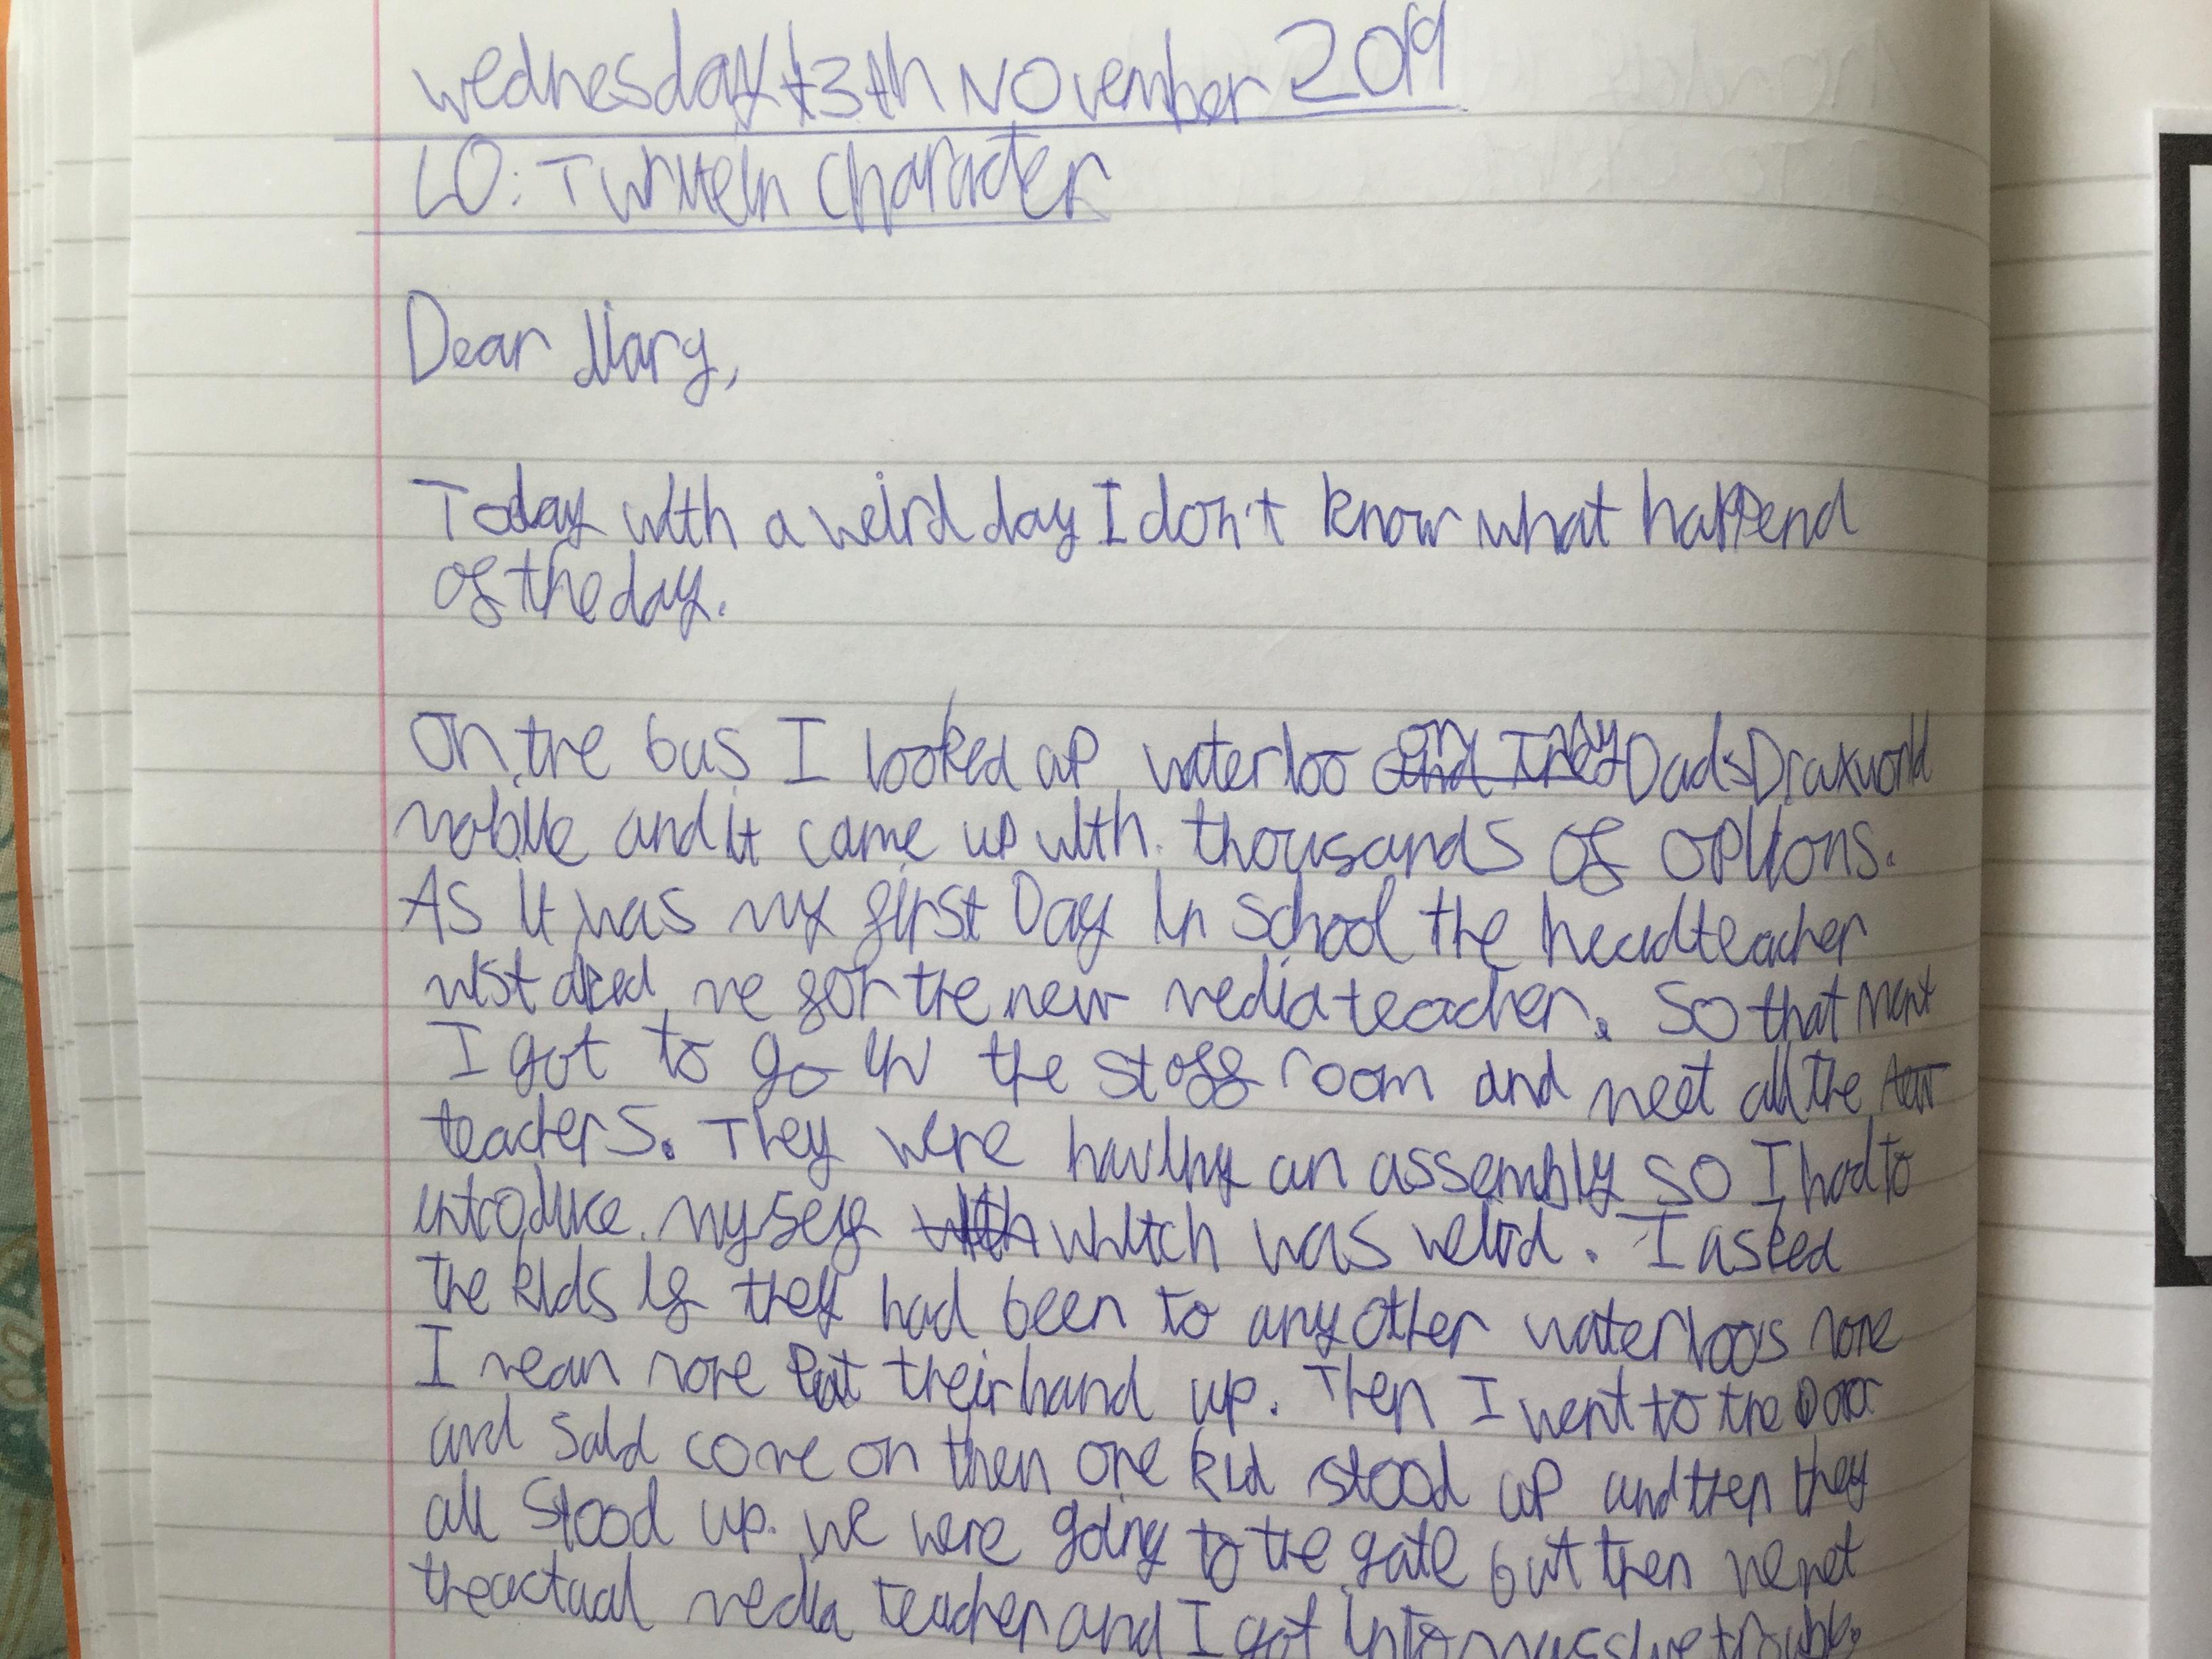 Wednesday 13th November 2019
LO: T write in character
Dear Diary,
Today with a weird day I don't know what happend
of the day.
On the bus I looked up waterloo on my Dads Draxworld
mobile and it came up with thousands of options.
As it was my first Day in school the headteacher
mistaked me for the new media teacher. So that ment
I got to go in the staff room and meet all the
teachers. They were having an assembly so I had to
introduce myself which was weird. I asked
the kids if they had been to any other waterloos none
I mean none put their hand up. Then I went to the Door
and said come on then one kid stood up and then they
all stood up. We were going to the gate but then we met
the actual media teacher and I got into massive trouble.